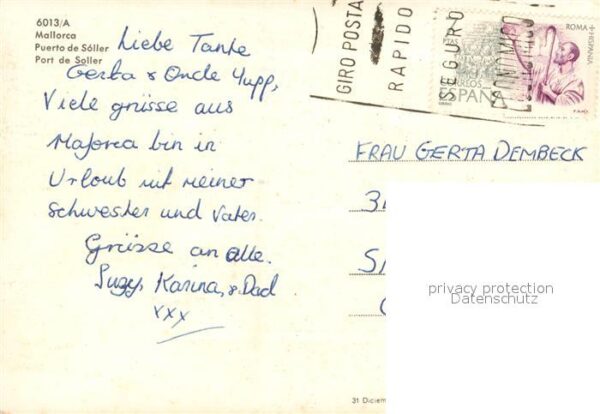 6013/A
Mallorca
Puerto de Sóller
Port de Soller
Liebe Tante
Gerta & Onde Yupp,
Viele grüsse aus
Majorca bin in
Urlaub mit meiner
Schwester und Vater.
Grüsse an alle.
Suzy, Karina, & Dad
xxx
GIRO POSTAL
RAPIDO
SEGURO
ECONOMICO
PTAS
ESPAÑA
ROMA + HISPANIA
FRAU GERTA DEMBECK
3
S
privacy protection
Datenschutz
31 Diciem